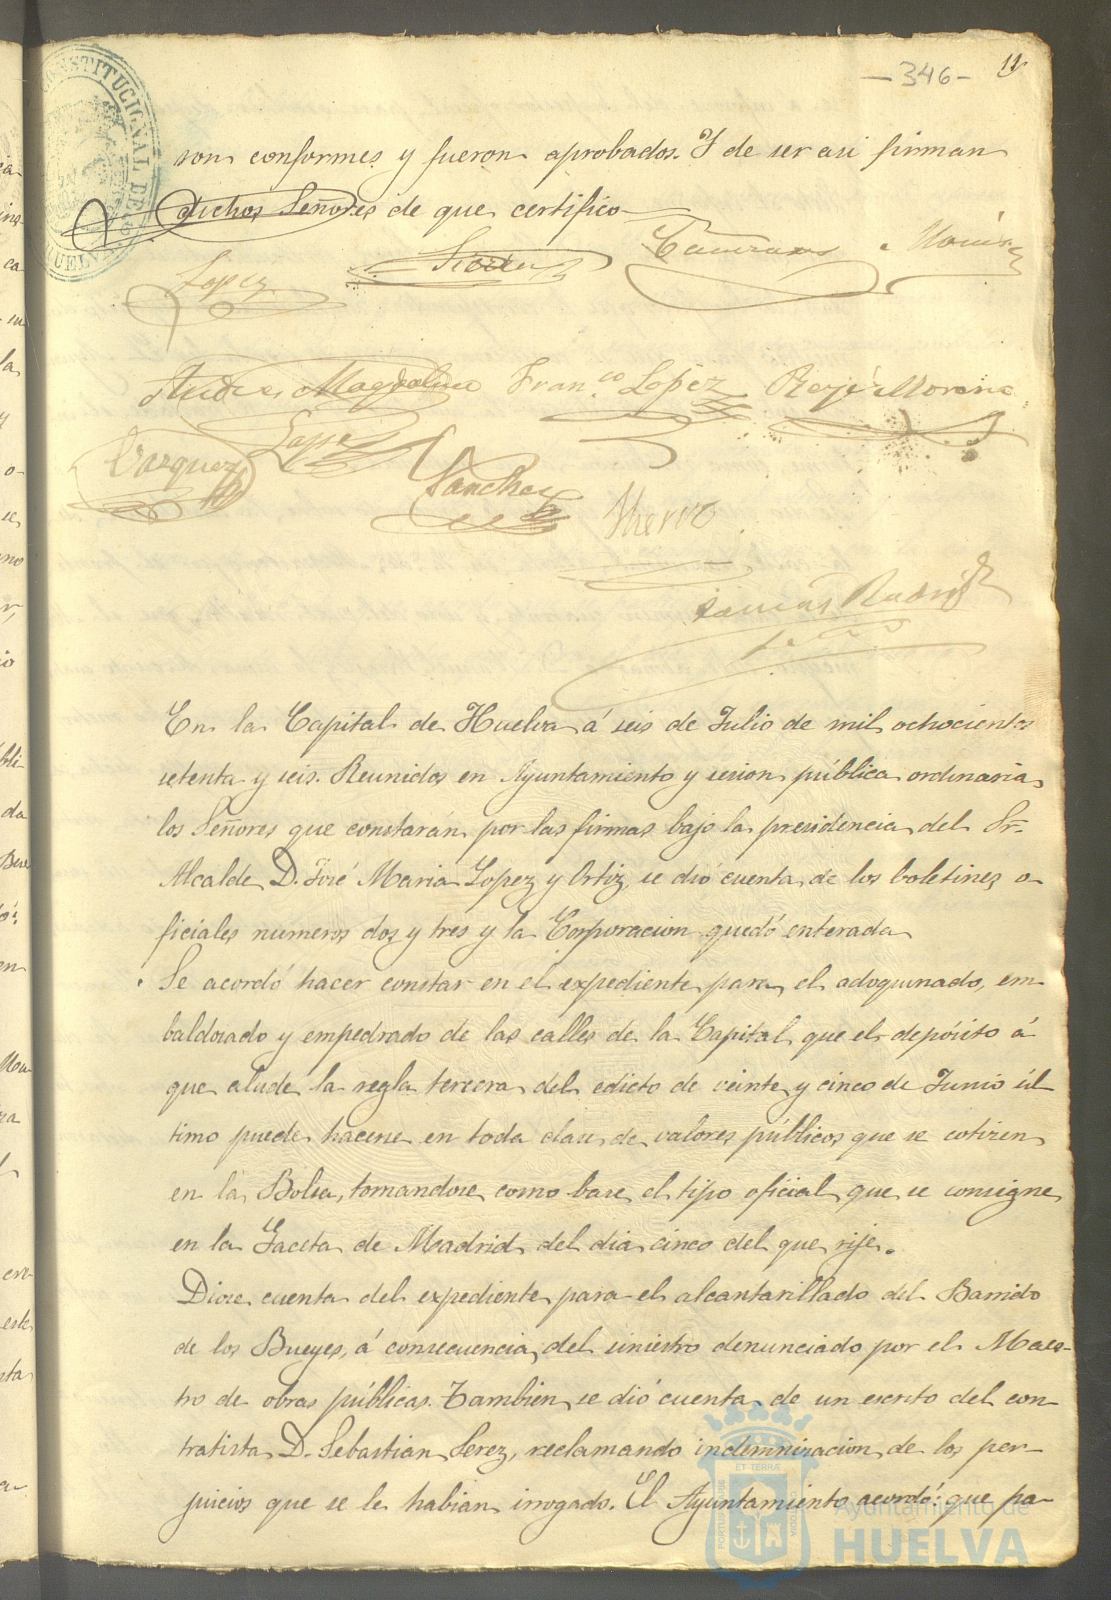 -346- 11
son conformes y fueron aprobados. Y de ser asi firman
dichos Señores de que certifico
Lopez
Magdalena Fran.co Lopez Moreno
Vazquez Lopez Sanchez
En la Capital de Huelva á seis de Julio de mil ochocientos
setenta y seis. Reunidos en Ayuntamiento y sesion pública ordinaria
los Señores que constarán por las firmas bajo la presidencia del Sr.
Alcalde D. José Maria Lopez y Ortiz, se dio cuenta de los boletines o-
ficiales numeros dos y tres y la Corporacion quedó enterada
Se acordó hacer constar en el expediente para el adoquinado, em
baldosado y empedrado de las calles de la Capital que el depósito á
que alude la regla tercera del edicto de veinte y cinco de Junio úl
timo puede hacerse en toda clase de valores públicos que se cotizen
en la Bolsa, tomandose como base el tipo oficial que se consigne
en la Gaceta de Madrid del dia cinco del que rije.
Diose cuenta del expediente para el alcantarillado del Barrido
de los Bueyes, á consecuencia del siniestro denunciado por el Maes-
tro de obras públicas. Tambien se dió cuenta de un escrito del con
tratista D. Sebastian Perez, reclamando indemnizacion de los per-
juicios que se le habian irrogado. El Ayuntamiento acordó: que pa-
Ayuntamiento de
HUELVA